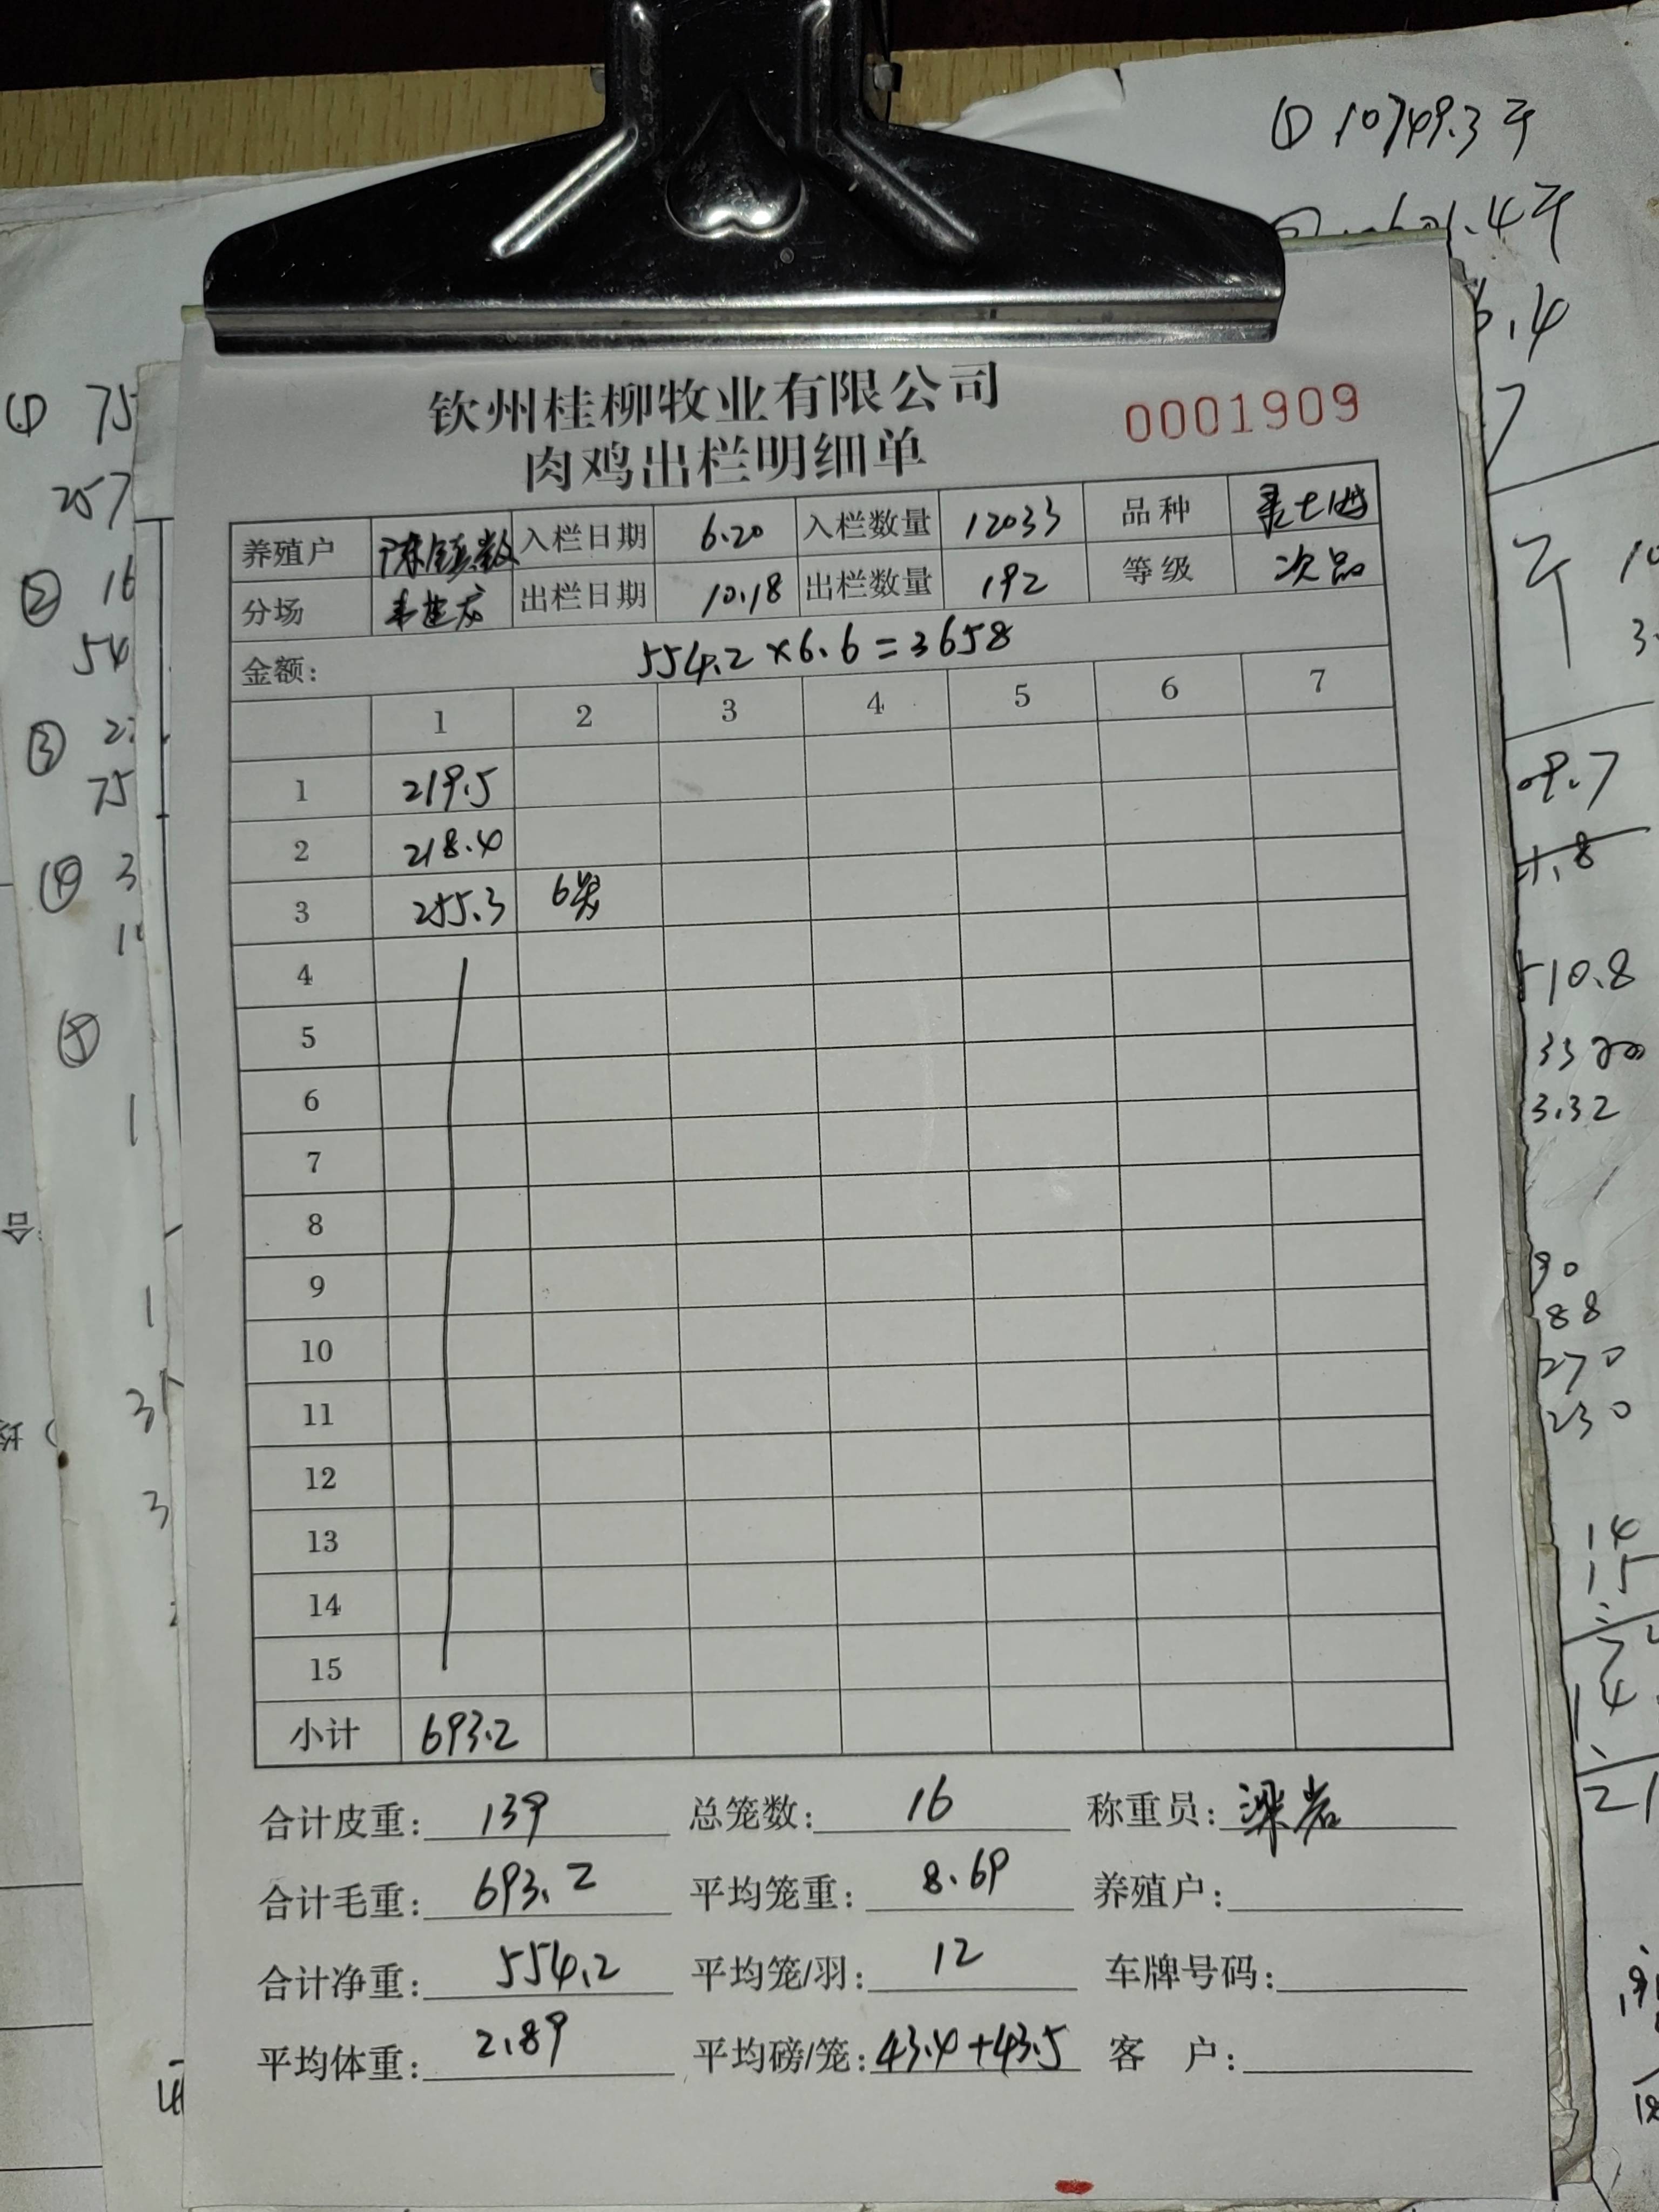 ① 10749.3斤
.4斤
钦州桂柳牧业有限公司
肉鸡出栏明细单
0001909
养殖户 陈镇数 入栏日期 6.20 入栏数量 12033 品种
分场 出栏日期 10.18 出栏数量 192 等级 次品
金额: 554.2×6.6=3658
1 2 3 4 5 6 7
1 219.5
2 218.4
3 255.3 6笼
4
5
6
7
8
9
10
11
12
13
14
15
小计 693.2
合计皮重: 139 总笼数: 16 称重员: 梁岩
合计毛重: 693.2 平均笼重: 8.69 养殖户:
合计净重: 554.2 平均笼/羽: 12 车牌号码:
平均体重: 2.89 平均磅/笼: 43.4+43.5 客 户:
① 75
257
② 16
54
③ 2
75
④ 3
⑤
10.8
3.32
88
270
230
14
15